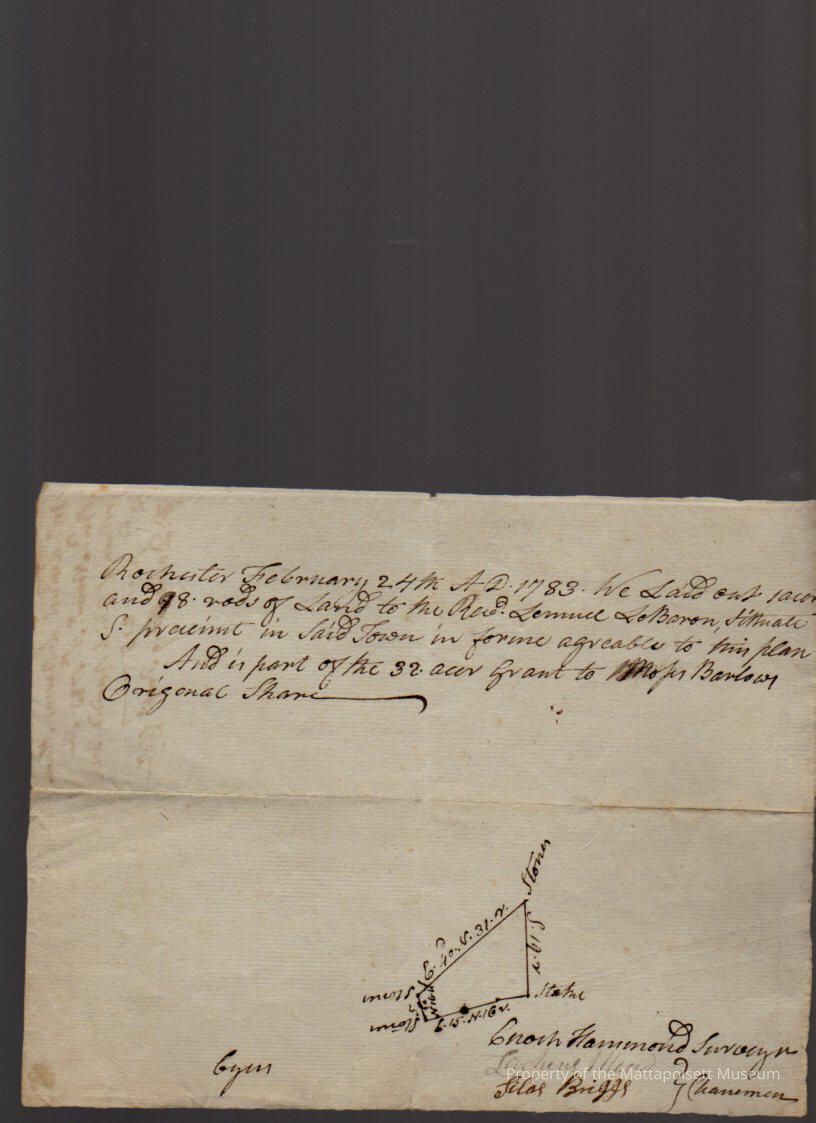 Rochester February 24th A D. 1783. We Laid out 1 acer
and 98. rods of Land to the Revd. Lemuel LeBaron, Sittuate
S. precinct in Said Town in forme agreable to this plan
And is part of the 32. acer Grant to Moses Barlows
Origenal Share
Stones
S. 19. r
E. 40. N. 31. r.
Stons
Stons
Stake
E. 15. N. 16 r.
Enoch Hammond Surveyr
Silas Briggs } Chanemen
Property of the Mattapoisett Museum